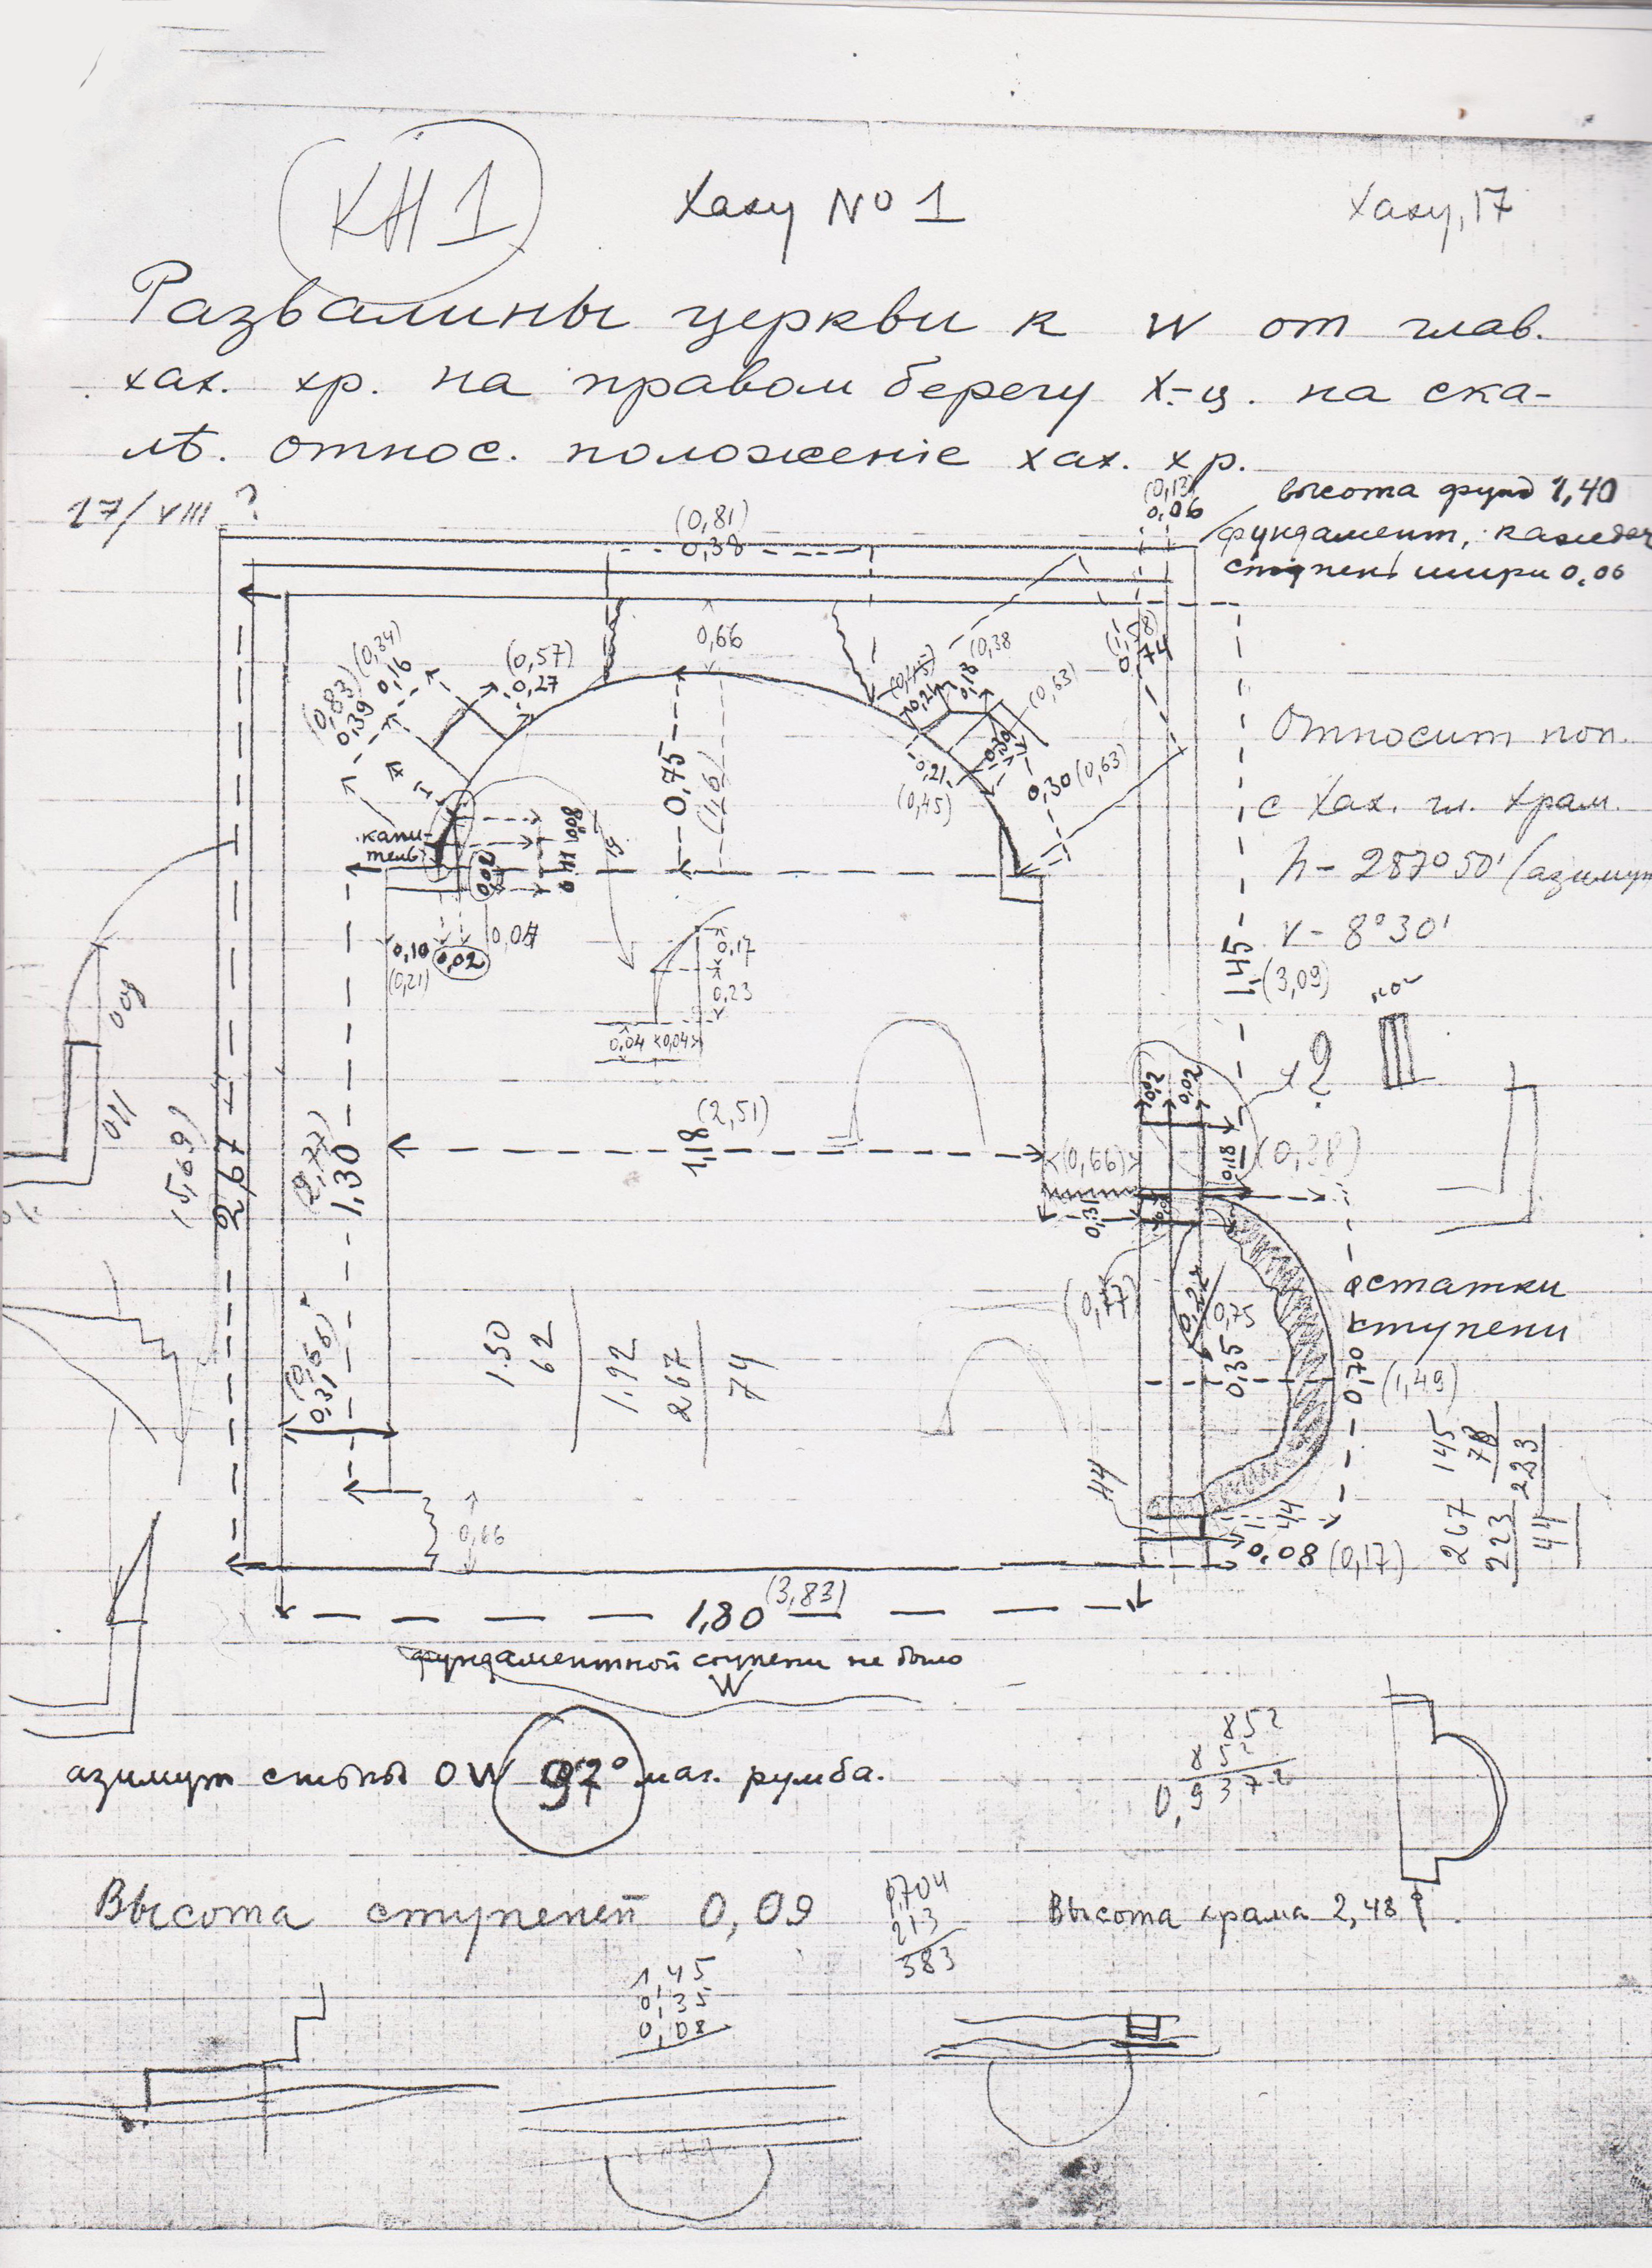 КН1
Хаху № 1
Хаху, 17
Развалины церкви к W от глав.
хах. хр. на правом берегу Х.-ц. на ска-
лѣ. относ. положенiе хах. хр.
17/VIII ?
(0,13)
0,06
высота фунд 1,40
фундамент, каждая
ступень шири 0,06
(0,81)
0,38
0,66
(0,57)
0,27
(0,34)
0,16
(0,83)
0,39
(0,45)
0,21
0,18
(0,38
(0,63)
0,30
0,21
(0,45)
0,30 (0,63)
(1,58)
0,74
0,75
(1,6)
капи-
тель
0,08
0,08
0,11
0,02
0,10
(0,21)
0,02
0,04
0,17
0,23
0,04
0,04
Относит пол.
с Хах. гл. храм.
h – 287°50' (азимут
v – 8°30'
1,45
(3,09)
?
(5,69)
2,67
(2,77)
1,30
1,18
(2,51)
0,02
0,02
(0,66)
0,31
0,18
(0,38)
(0,77)
(0,75
0,35
остатки
ступени
0,70
(1,49)
0,31
(0,66)
1.30
62
1.92
2.67
74
44
44
0,66
0,08 (0,17)
145
78
223
267
223
44
1,80
(3,83)
фундаментной ступени не было
W
азимут стѣны OW 97° маг. румба.
852
852
0,9372
Высота ступеней 0,09
1,704
213
383
Высота храма 2,48 ?
1,45
0,35
0,08